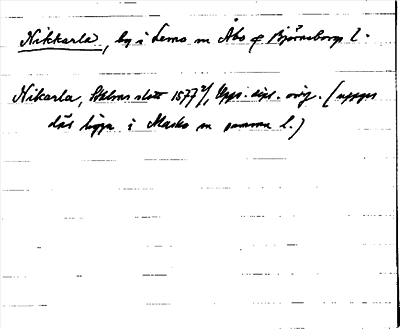 Nikkarla, by i Lemo sn Åbo o Björneborgs l.
Nikarla, Sthlms slott 1577 2/, Upps. dipl. orig. (uppges
där ligga i Masko sn samma l.)